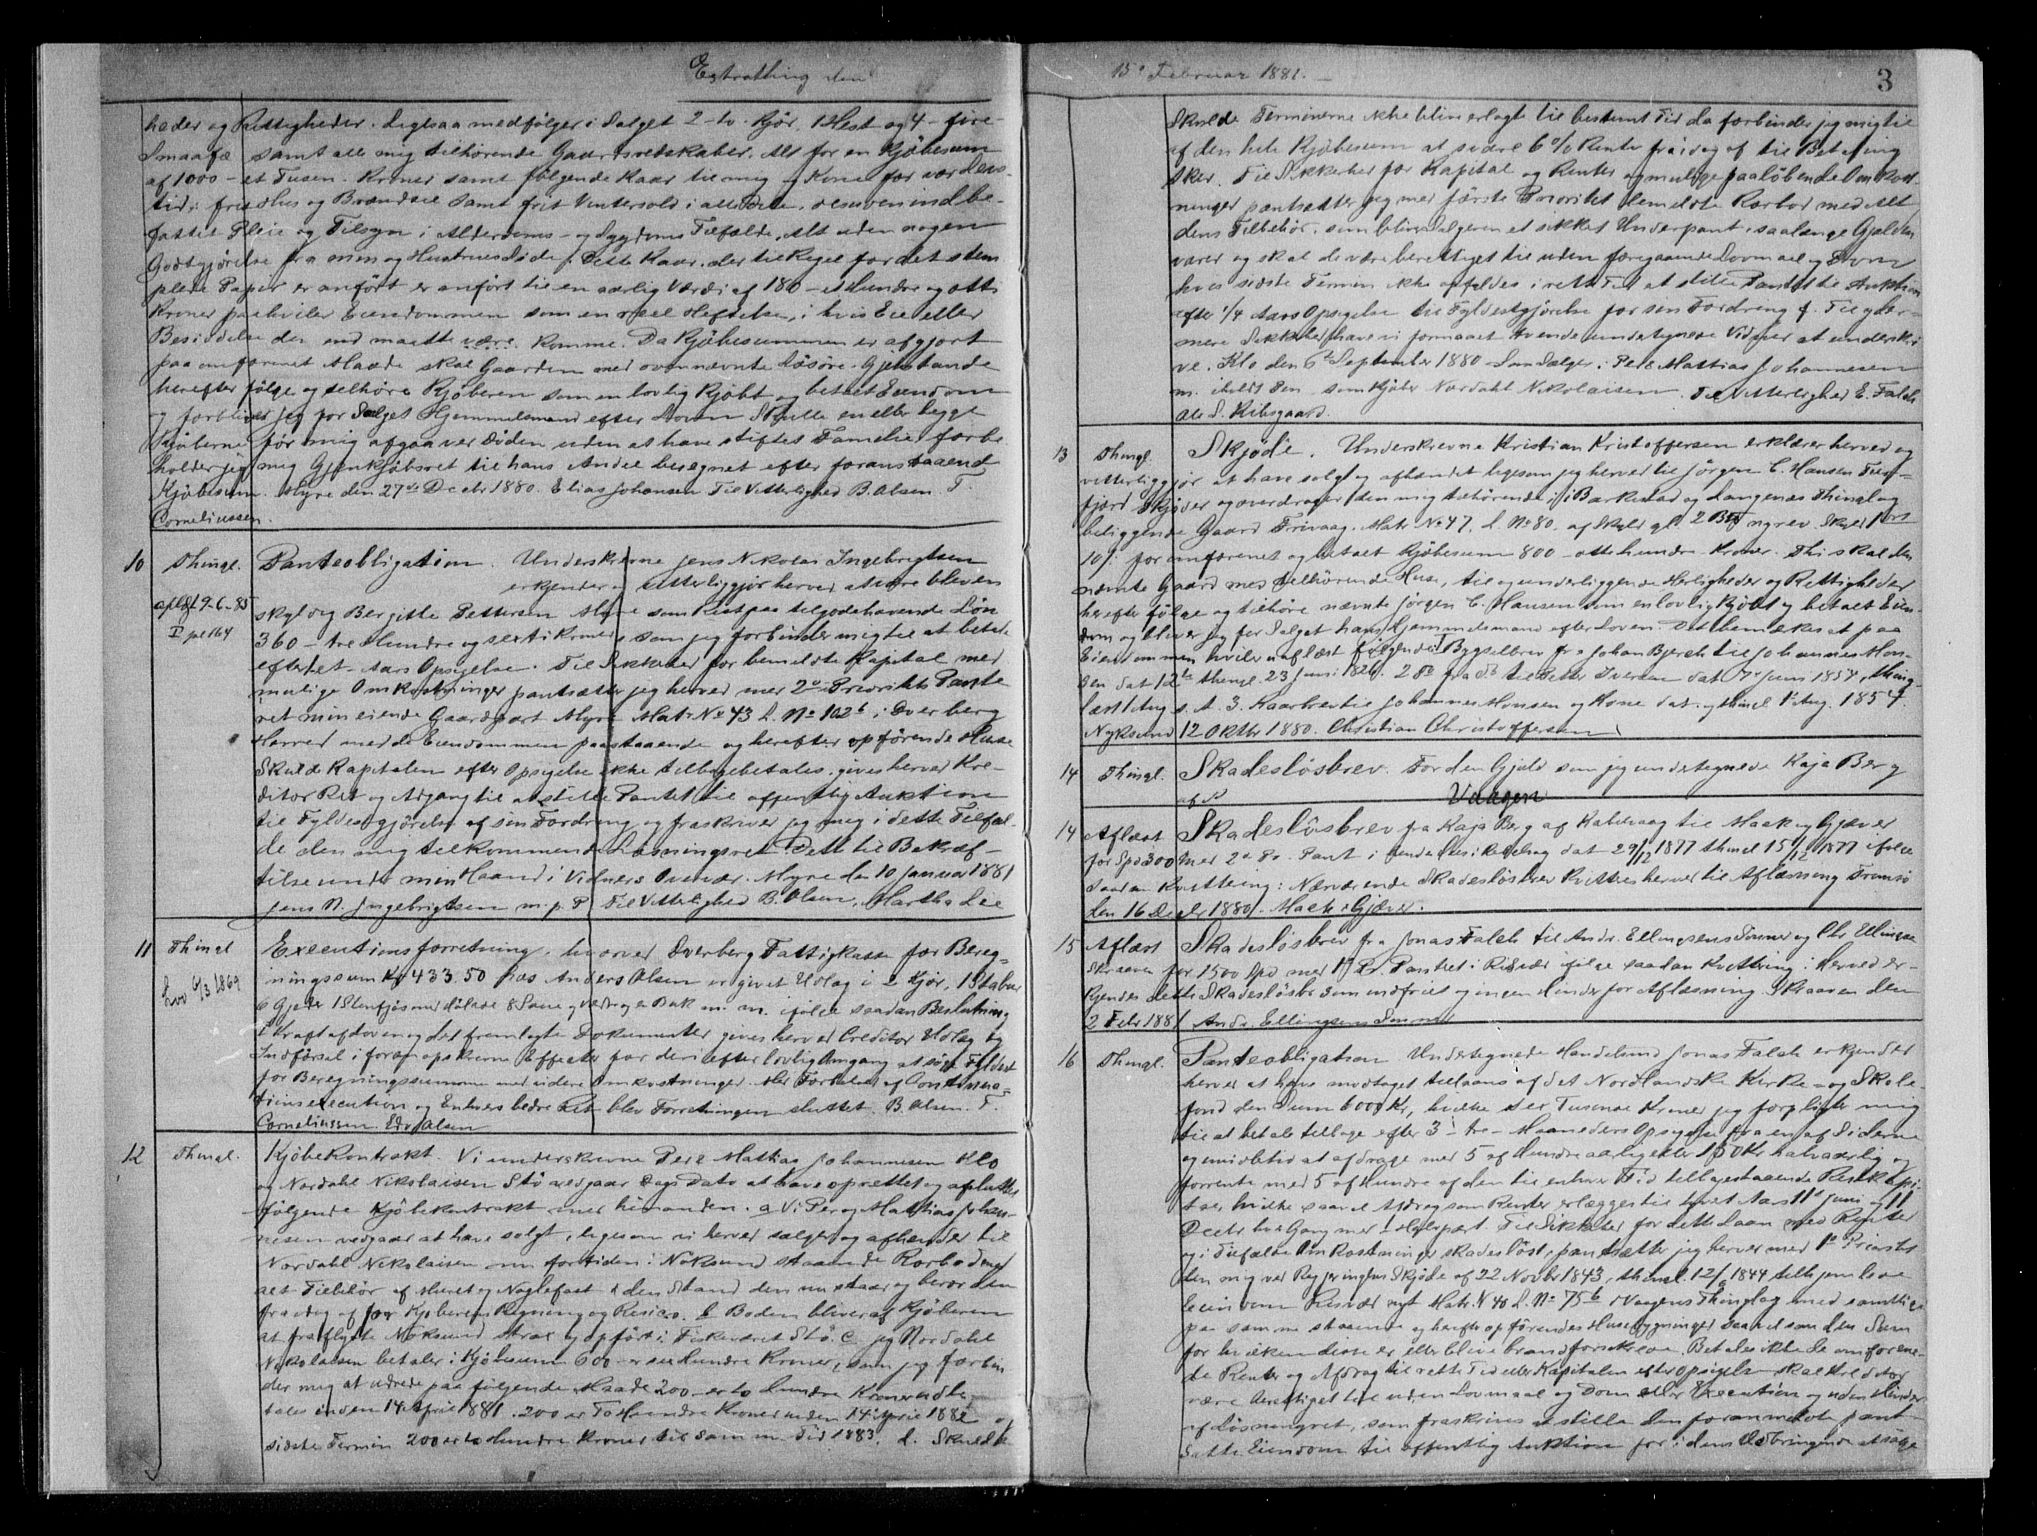 Extrathing den
heder og Rettigheder. Ligesaa medfølger i Salget 2- to- Kjør, 1 Hest og 4- fire-
Smaafæ samt alle mig tilhørende Gaardsredskaber. Alt for en Kjøbesum
af 1000- et Tusen- Kroner samt følgende Kaar til mig og Kone for vor Levetid: frit Hus og Brændsel samt frit Vinterfold i alle Dele, desuden indbefattet Pleie og Tilsyn i Alderdoms- og Sygdoms Tilfælde, Alt uden nogen
Godtgjørelse fra min og Hustrues Side. Dette Kaar, der til Regel for det stemplede Papir er anført er anført til en aarlig Værdi af 180- et Hundre og otti
Kroner paahviler Eiendommen som en reel Heftelse, i hvis Eie eller
Besiddelse den end maatte være komme. Da Kjøbesummen er afgjort
paa omførmet Maade skal Gaarden med ovennævnte Løsøre- Gjenstande
herefter følge og tilhøre Kjøberen som en lovlig Kjøbt og betalt Eiendom
og forbliver jeg for Salget Hjemmelsmand efter Loven. Skulle en eller begge
Kjøberne før mig afgaa ved Døden uden at have stiftet Familie forbeholder jeg mig Gjenkjøbsret til hans Andel beregnet efter foranstaaende
Kjøbesum. Myre den 27de Decbr 1880. Elias Johansen Til Vitterlighed B. Olsen. T.
Corneliussen.
10 Thingl. Panteobligation. Underskrevne Jens Nikolai Ingebrigtsen
erkjender og vitterliggjør herved at være bleven
aflæst 9-6-85 skyldig Bergitte Pettersen Myre som Rest paa tilgodehavende Løn
I pr 164
360- tre Hundre og sexti Kroner som jeg forbinder mig til at betale
efter et Aars Opsigelse. Til Sikkerhed for bemeldte Kapital med
mulige Omkostninger pantsætter jeg herved med 2den Prioritets Panteret min eiende Gaardpart Myre Matr No 43 L. No 102b i Dverberg
Herred med de Eiendommen paastaaende og herefter opførende Huse
Skulde Kapitalen efter Opsigelse ikke tilbagebetales, gives herved Kreditor Ret og Adgang til at stille Pantet til offentlig Auktion
til Fyldestgjørelse af sin Fordring og fraskriver jeg mig i dette Tilfælde den mig tilkommende Løsningsret. Dette til Bekræftelse under min Haand i Vidners Overvær. Myre den 10 Januar 1881
Jens N. Ingebrigtsen m. p. P. Til Vitterlighed B. Olsen, Martha Lie
11 Thingl Executionsforretning, hvorved Dverberg Fattigkasse for Beregningssum Kr 433.50 hos Anders Olsen er givet Udlag i 2 Kjør, 1 Stabur
Lov 6/3 1869
6 Gjeder 1 Stenfjøs med Hølade 8 Saue og Væder, en Buk m. m. ifølge saadan Beslutning
I Kraft af Loven og det fremlagte Dokumenter gives herved Creditor Udlæg og
Indførsel i foranopskrevne Effecter for deri efter lovlig Omgang at søge Fyldest
for Beregningssummen med videre Omkostninger. Med Forbehold af Continuationsexecution og Enhvers bedre Ret blev Forretningen sluttet. B. Olsen. T.
Corneliussen. Edv. Olsen
12 Thingl. Kjøbekontrakt. Vi underskrevne Peder Mathias Johannesen Klo
og Nordahl Nikolaisen Stø vedgaar Dags Dato at have oprettet og afsluttet
følgende Kjøbekontrakt med hinanden. a Vi Per og Mathias Johannesen vedgaar at have solgt, ligesom vi herved sælger og afhænder til
Nordahl Nikolaisen nu fortiden i Nøksund staaende Rorbod med
alt Tilbehør af Muret og Naglefast i den Stand den nu staar og beror den
fra idag af for Kjøberens Regning og Risico. b Boden bliver af Kjøberen
at fraflytte Nøksund strax og opført i Fiskeværet Stø. c jeg Nordahl
Nikolaisen betaler i Kjøbesum 600- sex Hundre Kroner, som jeg forbinder mig at udrede paa følgende Maade 200- er to Hundre Kroner udbetales inden 14 April 1881. 200 er To Hundre Kroner inden 14 April 1882 og
sidste Termin 200 er to Hundre Kroner til samme Tid 1883. d. Skulde
15de Februar 1881.
3
Skulde Terminerne ikke blive erlagte til bestemt Tid da forbinder jeg mig til
af den hele Kjøbesum at svare 6% Rente fra idag af til Betaling
sker. Til Sikkerhed for Kapital og Renter og mulige paaløbende Omkostninger pantsætter jeg med første Prioritet bemeldte Rorbod med Alt
dens Tilbehør, som bliver Sælgeren et sikket Underpant, saalænge Gjælden
varer og skal de være berettiget til uden foregaaende Lovmaal og Dom
hvis sidste Termin ikke opfyldes i rette Tid at stille Pantet til Auktion
efter 1/4 Aars Opsigelse til Fyldestgjørelse for sin Fordring f. Til ydermere Sikkerhed have vi formaaet tvende undertegnede Vidner at underskrive. Klo den 6te September 1880 Som Sælger: Peder Mathias Johannesen
m. iholdt Pen som Kjøber Nordahl Nikolaisen. Til Vitterlighed E. Falch
Ole S. Kibsgaard.
13 Thingl. Skjøde. Underskrevne Kristian Kristoffersen erklærer herved og
vitterliggjør at have solgt og afhændet ligesom jeg herved til Jørgen C. Hansen Tinfjord skjøder og overdrager den mig tilhørende i Barkestad og Langenæs Thinglag
beliggende Gaard Frivaag. Matr No 47. L. No 80. af Skyld gl. 2 ny rev. Skyld 1 ort
10 s. for omførenet og betalt Kjøbesum 800- otte hundre Kroner. Thi skal den
nævnte Gaard med tilhørende Huse, til- og underliggende Herligheder og Rettigheder
herefter følge og tilhøre nævnte Jørgen C. Hansen som en lovlig kjøbt og betalt Eiendom og bliver jeg for Salget hans Hjemmelsmand efter Loven. Det bemærkes at paa
Eiendommen hviler uaflæst følgende: 1 Bygselbrev fra Johan Bjerch til Johannes Monsen dat 12te thingl. 23 Juni 1826. 2 do fra do til Peder Iversen dat 7de Juni 1854, thinglæst 1 Aug. s. A. 3. Kaarbrev til Johannes Monsen og Kone dat. og thingl 1 Aug. 1854.
Nyksund 12 Oktbr 1880. Christian Christoffersen
14 Thingl. Skadesløsbrev. For den Gjæld som jeg undertegnede Kaja Berg
af
Vaagen
14 Aflæst Skadesløsbrev fra Kaja Berg af Kabelvaag til Mack og Gjæver
for Spd 300 med 2den Pr. Pant i dat 29/11 1877 thingl 15/12 1877 ifølge
saadan Kvittering: Nærværende Skadesløsbrev Kvitteres herved til Aflæsning Tromsø
den 16 Decbr 1880. Mack & Gjæver.
15 Aflæst Skadesløsbrev fra Jonas Falch til Andr. Ellingsens Sønner og Chr Ellingsen
Skraaven for 1500 Spd med 1ste Pr. Panteret i Risvær ifølge saadan Kvittering: Herved erkjendes dette Skadesløsbr som indfriet og ingen Hinder for Aflæsning. Skraaven den
2 Febr 1881 Andr. Ellingsens Sønner
16 Thingl. Panteobligation Undertegnede Handelsmd Jonas Falch erkjender
herved at have modtaget tillaans af det Nordlandske Kirke- og Skolefond den Sum 6000 Kr, hvilke sex Tusende Kroner jeg forpligter mig
til at betale tilbage efter 3- tre- Maaneders Opsigelse fra en af Siderne
og imidlertid at afdrage med 5 af Hundre aarlig eller 150 Kr halvaarlig og
forrente med 5 af Hundre af den til enhver Tid tilbagestaaende Restkapital, hvilke saavel Afdrag som Renter erlægges til hvert Aars 11te Juni og 11
Decbr hver Gang med Halvpart. Til Sikkerhed for dette Laan med Renter
og i Tilfælde Omkostninger skadesløst, pantsætter jeg herved med 1ste Prioritet
den mig ved Regjerings Skjøde af 22 Novbr 1843, thingl. 12/6 1844 tilhjemlede
Eiendom Risvær nyt Matr. N 40 L. No 75b i Vaagens Thinglag med samtlige
paa samme staaende og herefter opførendes Husebygninger saavel som den Sum
for hvilken disse er eller blive brandforsikrede. Betales ikke de omførenede Renter og Afdrag til rette Tid eller Kapitalen efter Opsigelse skal Kreditor
være berettiget til uden Lovmaal og Dom eller Execution og uden Hinder
af løsningsret, som fraskrives at stille den foranmeldte pantsatte Eiendom til offentlig Auktion for i dens Udbringende at søge